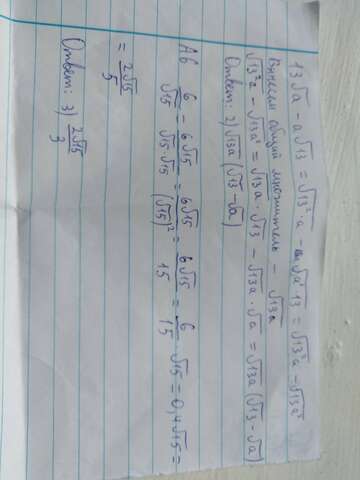 13√a - a√13 = √13²·a - √a²·13 = √13²a - √13a²
Вынесем общий множитель - √13a
√13²a - √13a² = √13a·√13 - √13a·√a = √13a(√13-√a)
Ответ: 2) √13a(√13-√a)
А6 6/√15 = 6√15/(√15·√15) = 6√15/(√15)² = 6√15/15 = 6/15·√15 = 0,4√15 =
= 2√15/5
Ответ: 3) 2√15/3